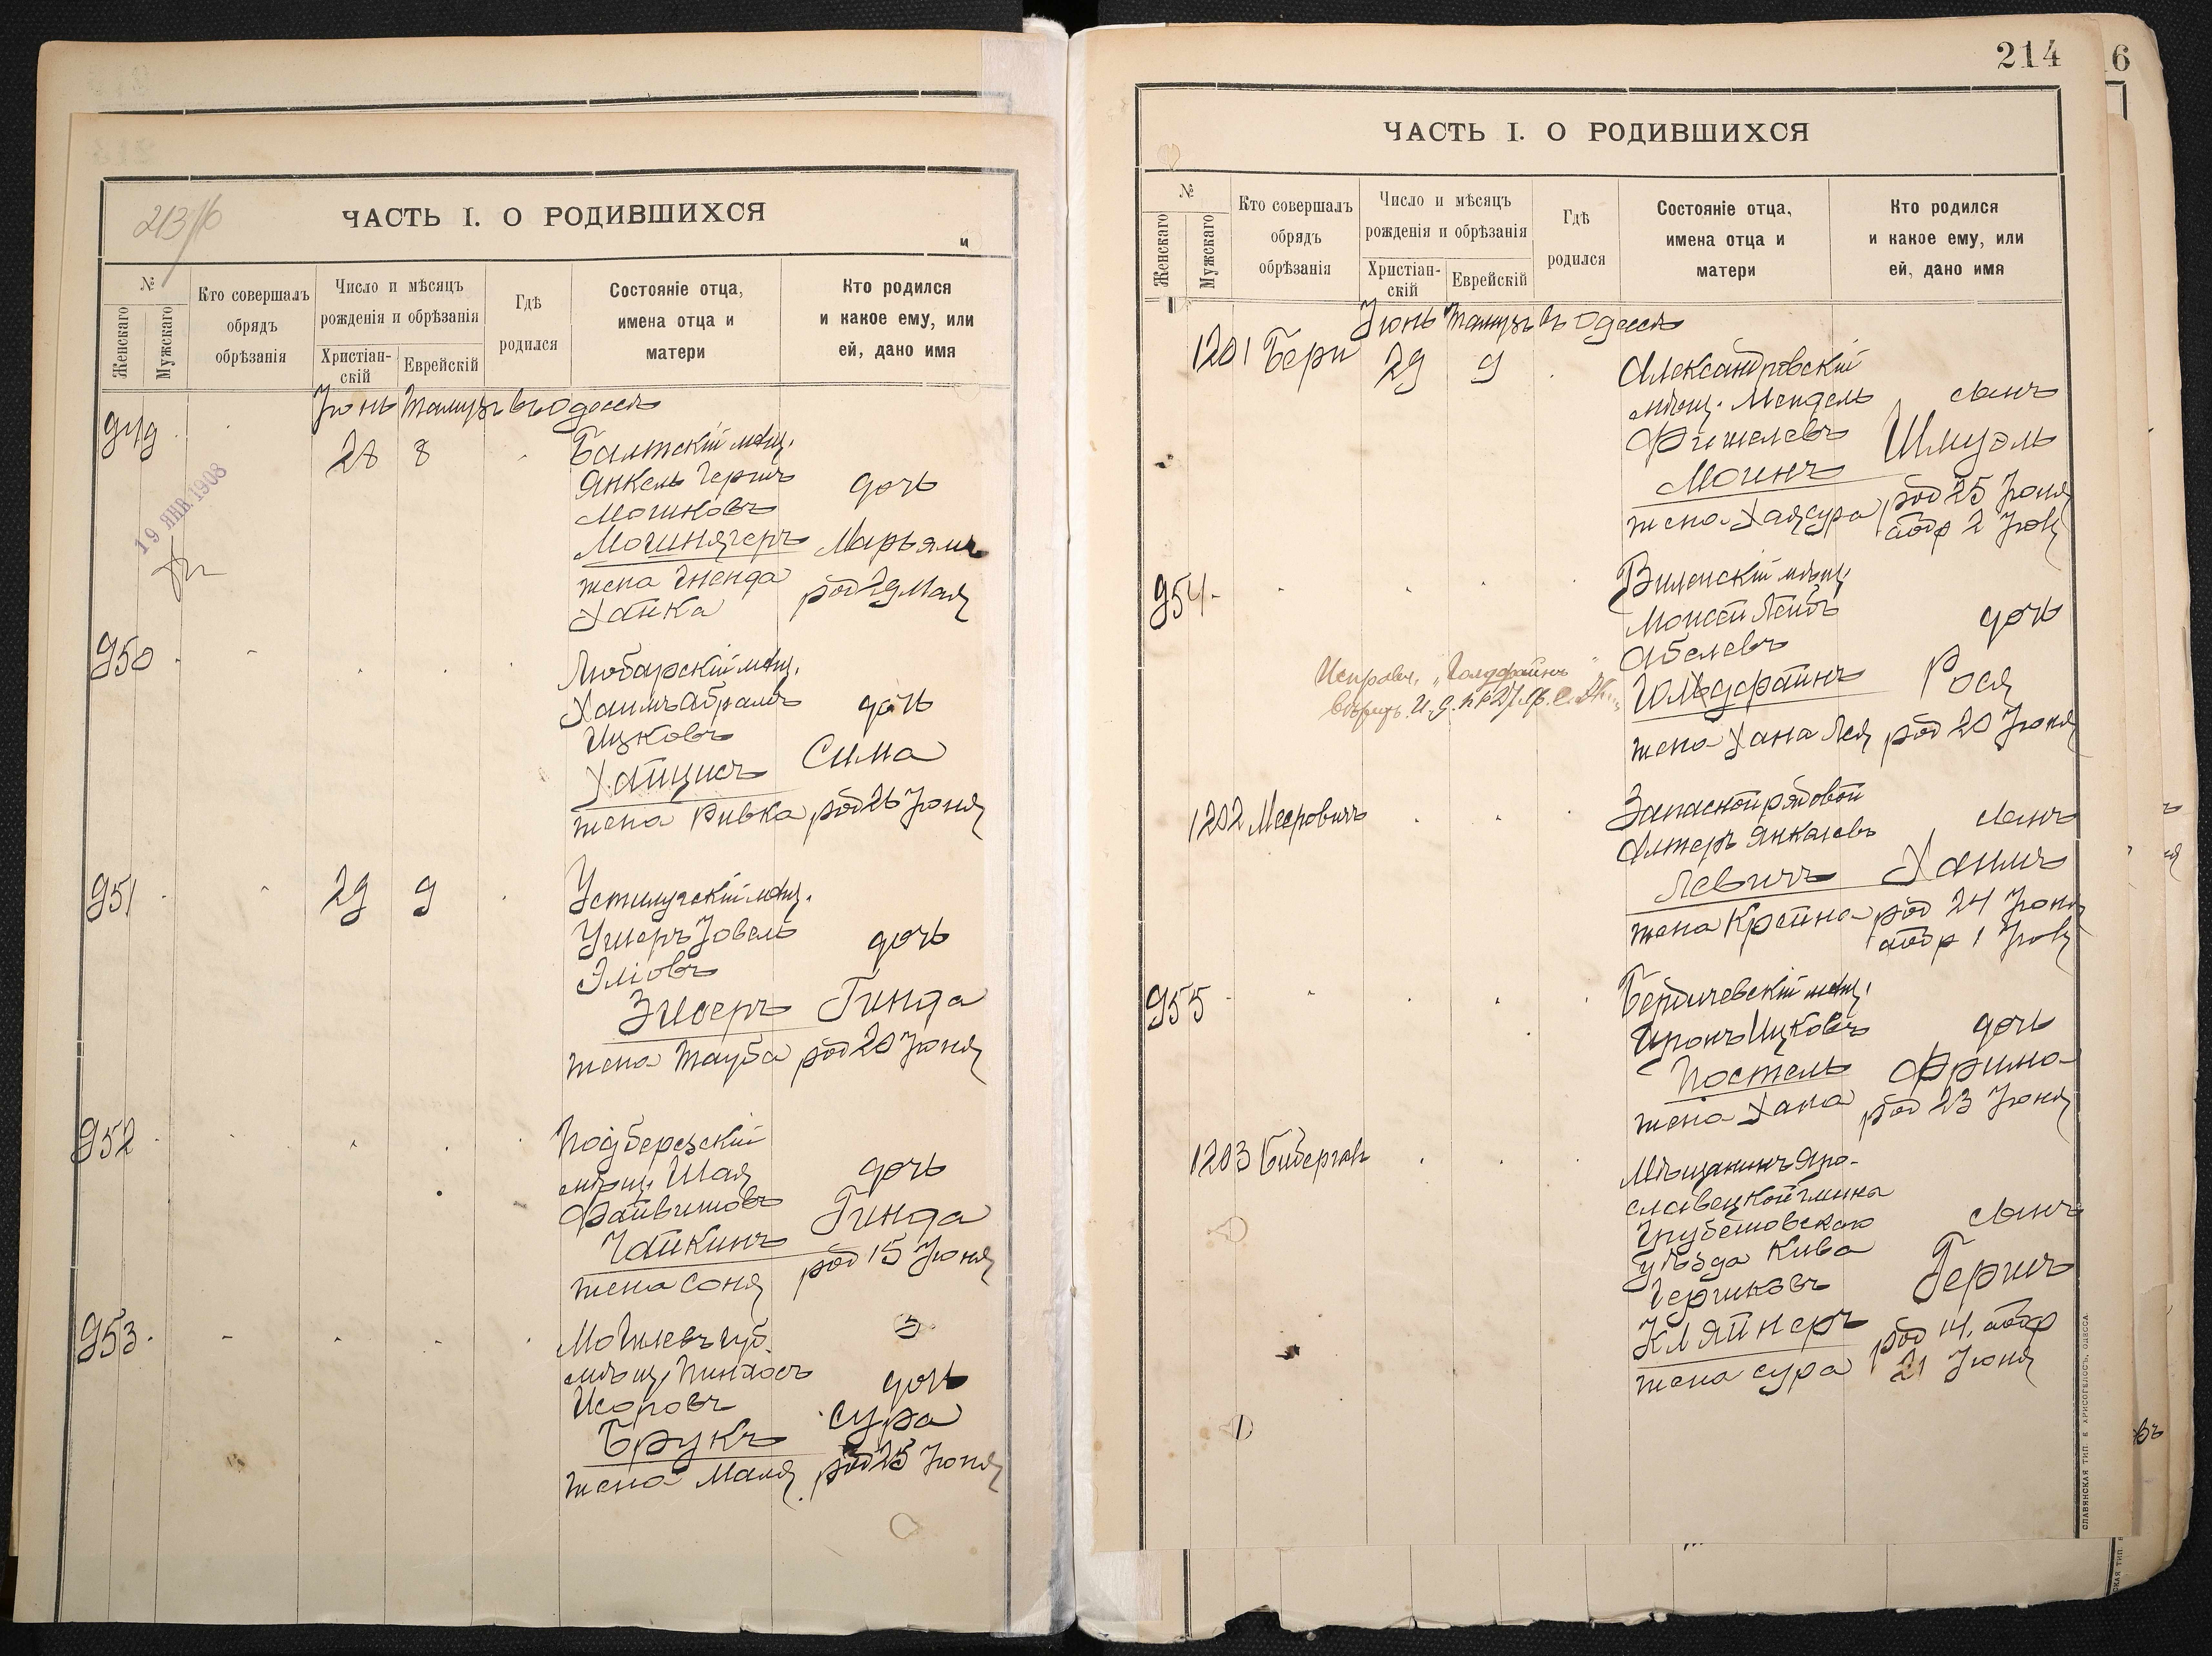 213/б
ЧАСТЬ I. О РОДИВШИХСЯ
и
№
Женскаго
Мужскаго
Кто совершалъ
обрядъ
обрѣзанія
Число и мѣсяцъ
рожденія и обрѣзанія
Христіан-
скій
Еврейскій
Гдѣ
родился
Состояніе отца,
имена отца и
матери
Кто родился
и какое ему, или
ей, дано имя
Іюнь Тамузъ въ Одессѣ
949
28 8
Балтскій мѣщ.
Янкель Гершъ
Мошковъ
Мошнягеръ
жена Гненда
Ханка
дочь
Марьямъ
род 29 Мая
19 ЯНВ. 1908
950
Любарскій мѣщ.
Хаимъ Абрамъ
Ицковъ
Хайцисъ
жена Ривка
дочь
Сима
род 26 Іюня
951
29 9
Устилугскій мѣщ.
Ушеръ Іовель
Эліовъ
Зисеръ
жена Тауба
дочь
Гинда
род 20 Іюня
952
Подберезскій
мѣщ. Шая
Файвишовъ
Чайкинъ
жена Соня
дочь
Гинда
род 15 Іюня
953
Могилевъ губ.
мѣщ. Пинхосъ
Исоровъ
Брукъ
жена Маля
дочь
Сура
род 25 Іюня
214
6
ЧАСТЬ I. О РОДИВШИХСЯ
№
Женскаго
Мужскаго
Кто совершалъ
обрядъ
обрѣзанія
Число и мѣсяцъ
рожденія и обрѣзанія
Христіан-
скій
Еврейскій
Гдѣ
родился
Состояніе отца,
имена отца и
матери
Кто родился
и какое ему, или
ей, дано имя
Іюнь Тамузъ въ Одессѣ
1201 Бери
29 9
Александровскій
мѣщ. Мендель
Фишелевъ
Моинъ
жена Хая сура
сынъ
Шмуэль
род 25 Іюня
обр 2 Іюл
954
Виленскій мѣщ.
Мовсей Лейбъ
Абелевъ
Гольдфайнъ
жена Хана Лея
дочь
Рося
род 20 Іюня
Исправл. „Голдфайнъ“
1202 Мееровичъ
Запасной рядовой
Алтеръ Янкелевъ
Левичъ
жена Крейна
сынъ
Хаимъ
род 24 Іюня
обр 1 Іюл
955
Бердичевскій мѣщ.
Аронъ Ицковъ
Постель
жена Хана
дочь
Фрима
род 23 Іюня
1203 Бибергаль
Мѣщанинъ Яро-
славецкой гмина
Грубешовскаго
уѣзда Кива
Гершковъ
Кляйнеръ
жена Сура
сынъ
Гершъ
род 14, обр
21 Іюня
СЛАВЯНСКАЯ ТИП. Е. ХРИСОГЕЛОСЪ, ОДЕССА